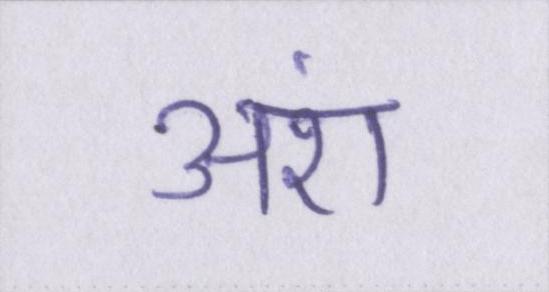 अंश